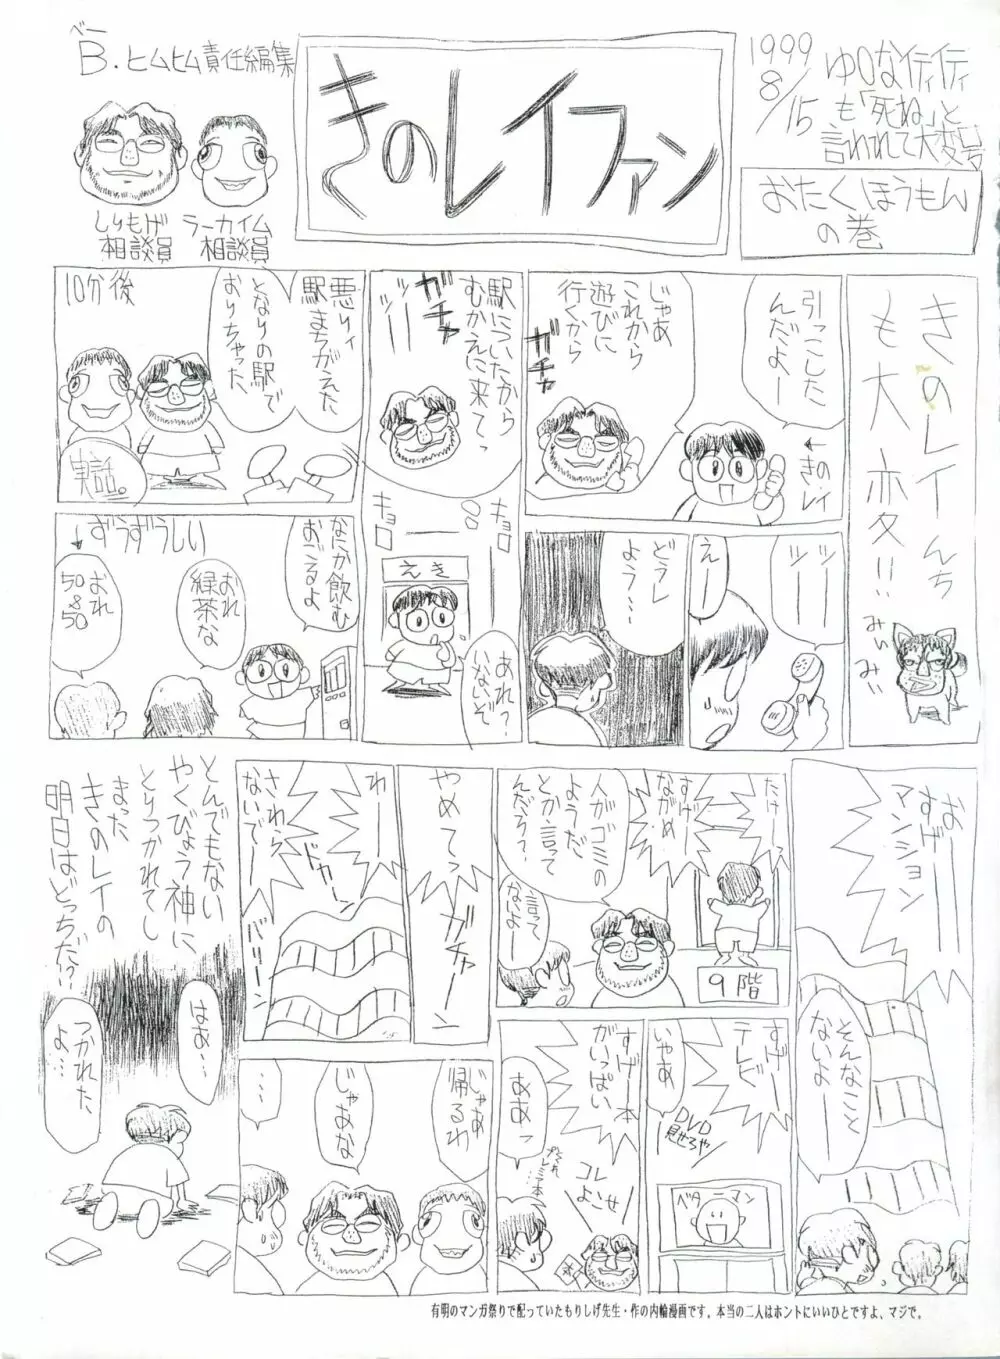 ベー
B.ヒムヒム責任編集
きのレイファン
1999
8/15
ゆりなイティイティ
も「死ね」と
言われて大変号
おたくほうもん
の巻
しりもげ
相談員
ラーカイム
相談員
きのレイんち
も大変!!
みぃみぃ
引っこした
んだよー
←きのレイ
じゃあ
これから
遊びに
行くから
ガチャ
ツー
ツー
えー
どうし
よう…
駅についたから
むかえに来てっ
ガチャ
ツー
ツー
キョロ
キョロ
えき
あれ?
いないぞ
10分後
悪りィ
駅まちがえた
となりの駅で
おりちゃった
実話。
なんか飲む
おごるよ
おれ
緑茶な
おれ
50&50
ずうずうしい
おー
すげー
マンション
そんなこと
ないよー
たけー
すげー
ながめ
人がゴミの
ようだ
とか言って
んだろ?
言って
ないよー
9階
すげー
テレビー
いやあ
DVD
見せろや
ベターマン
すげー本
がいっぱい
ああっ
コレ
よこせ
やめてっ
ガチャーン
わー
さわら
ないでー
ドカーン
バリーン
じゃあ
帰るわ
じゃあな
…
とんでもない
やくびょう神に
とりつかれてし
まった
きのレイの
明日はどっちだ!?
はあ…
つかれた
よ…
有明のマンガ祭りで配っていたもりしげ先生・作の内輪漫画です。本当の二人はホントにいいひとですよ、マジで。